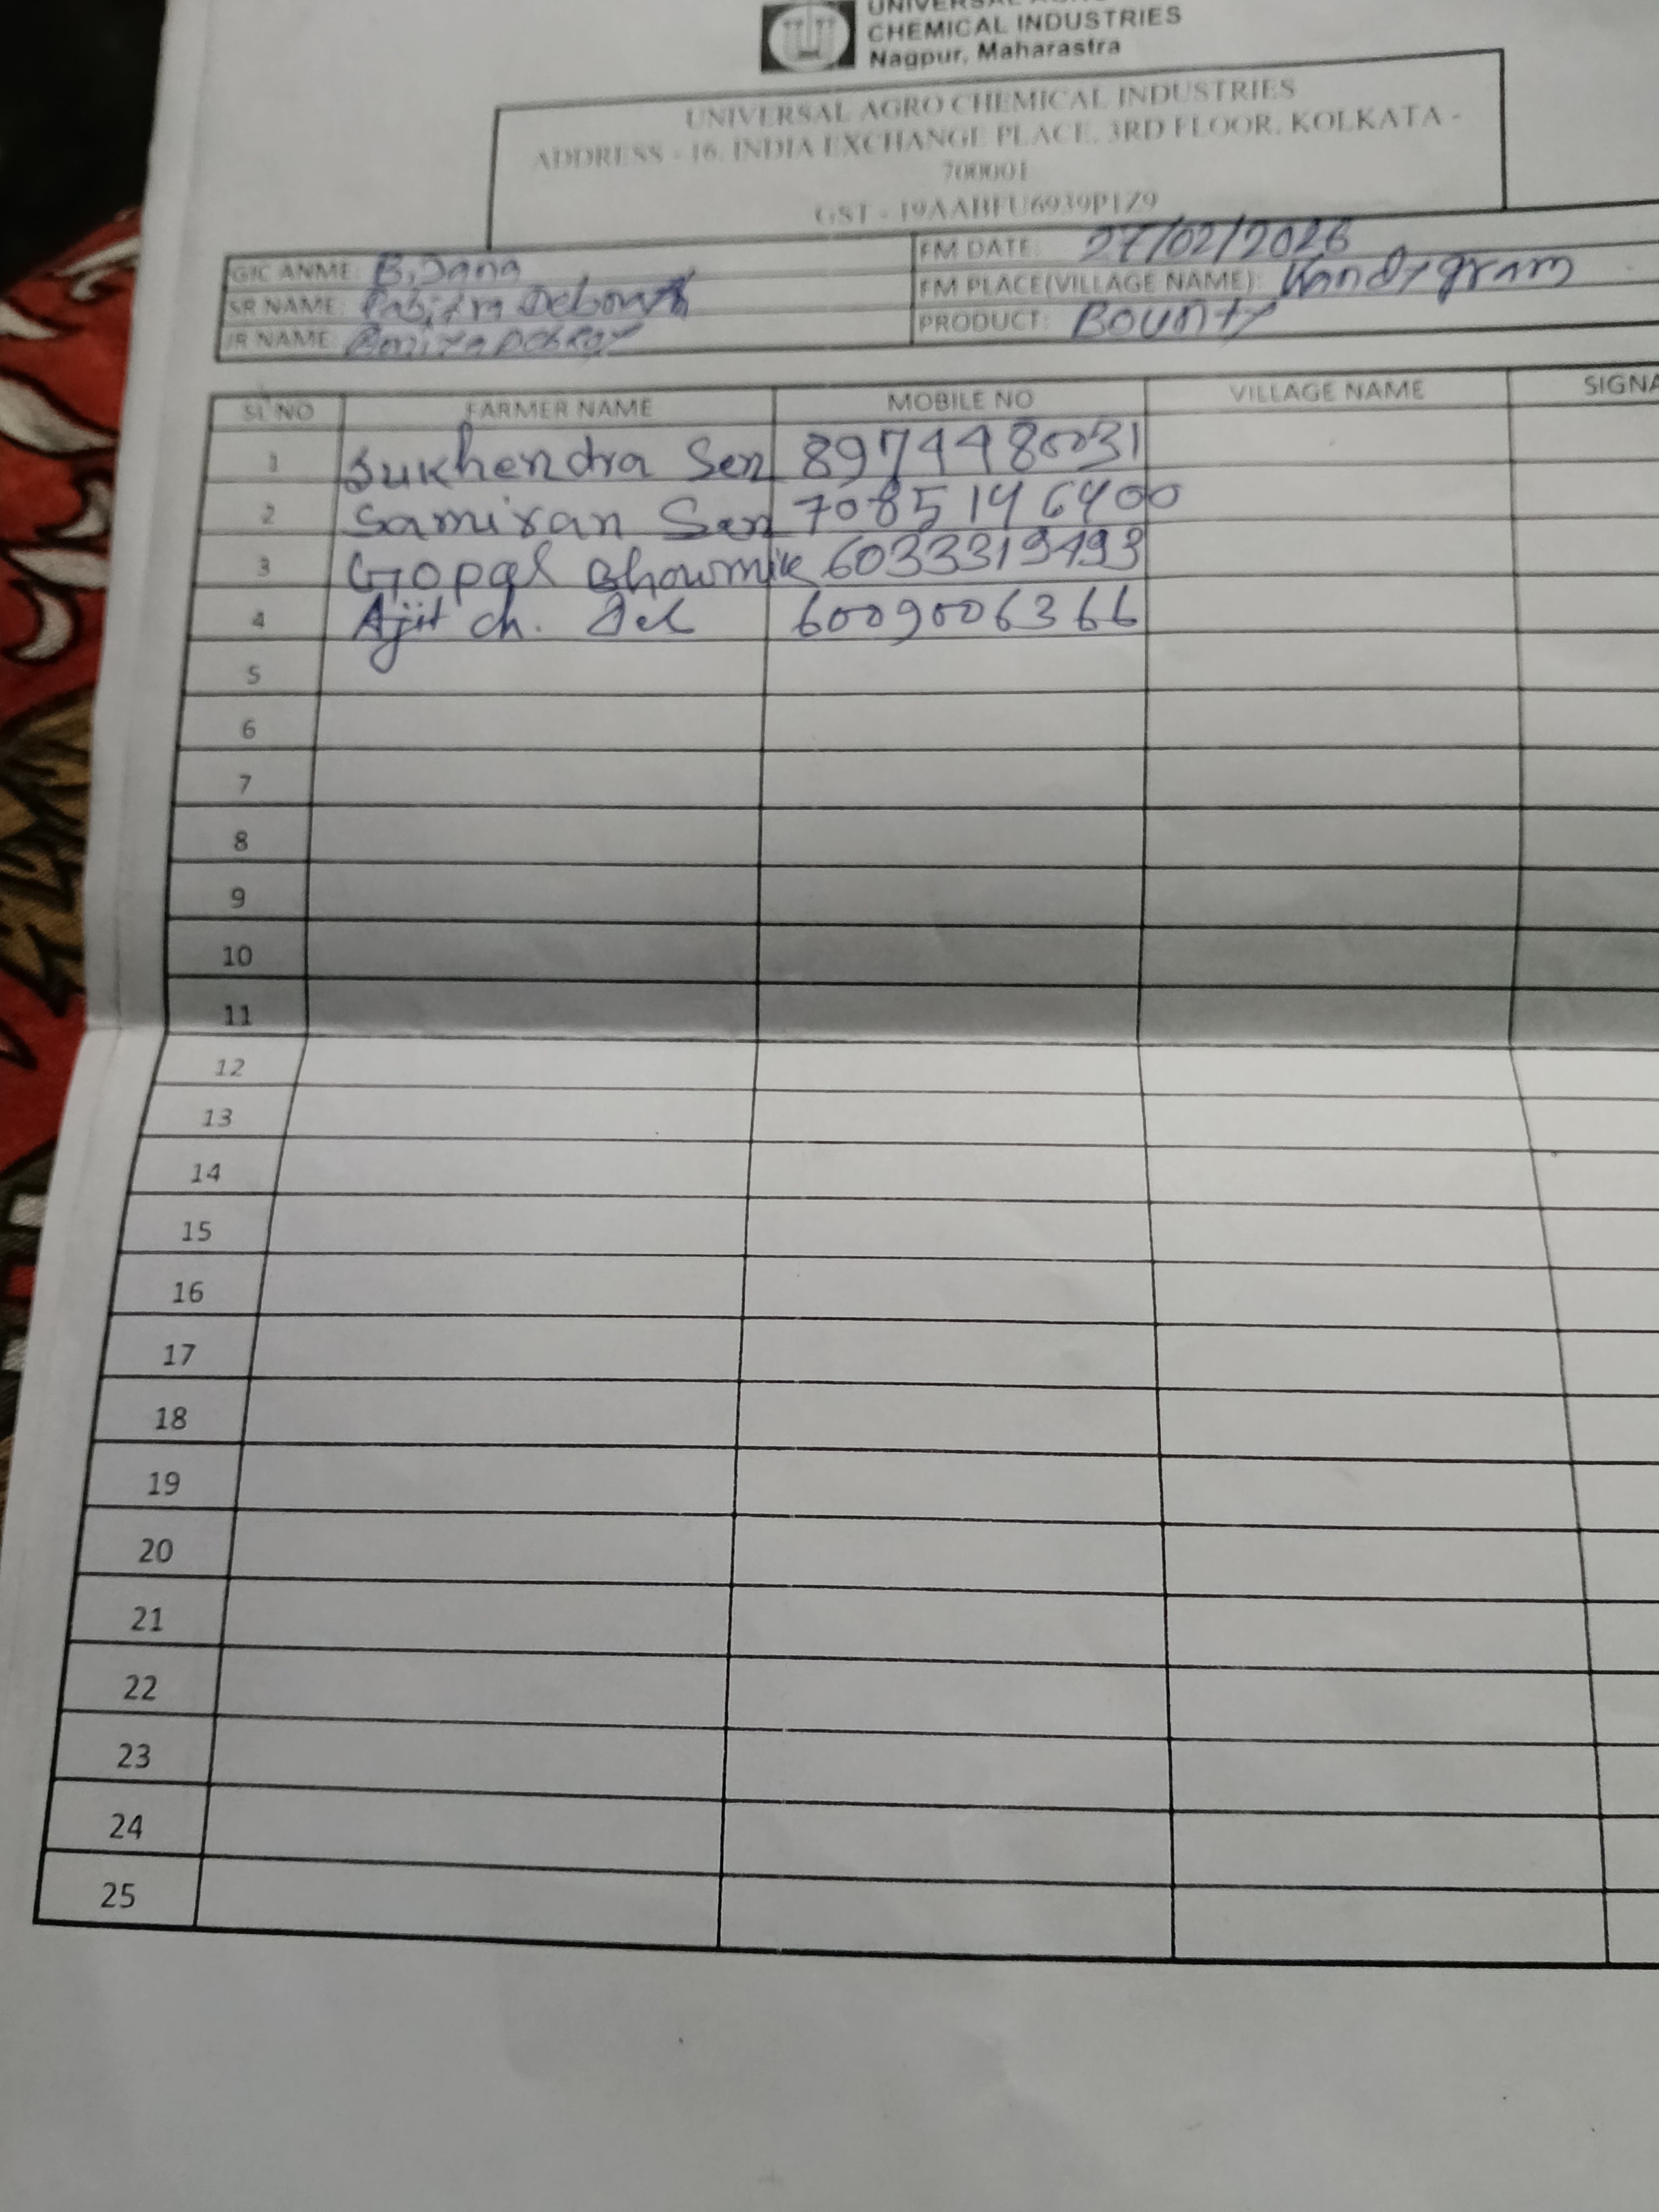 UNIVERSAL AGRO
CHEMICAL INDUSTRIES
Nagpur, Maharastra
UNIVERSAL AGRO CHEMICAL INDUSTRIES
ADDRESS - 16, INDIA EXCHANGE PLACE, 3RD FLOOR, KOLKATA -
700001
GST - 19AABFU6939P1Z9
GIC ANME: B. Jana
FM DATE: 27/02/2026
SR NAME: Pabitra
FM PLACE(VILLAGE NAME):
JR NAME:
PRODUCT: Bounty
SL NO FARMER NAME MOBILE NO VILLAGE NAME SIGNA
1 Sukhendra Sen 8974480031
2 Samiran Sen 7085146400
3 Gopal Bhowmik 6033319493
4 Ajit ch. 6009006366
5
6
7
8
9
10
11
12
13
14
15
16
17
18
19
20
21
22
23
24
25